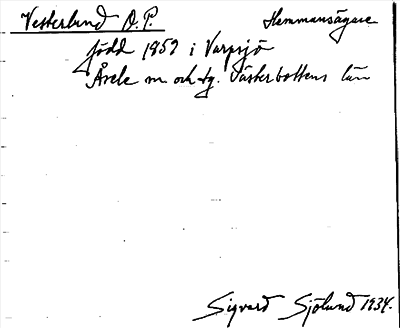 Vesterlund O. P. Hemmansägare
född 1857 i Varpsjö
Åsele sn. och tg. Västerbottens län
Sigvard Sjölund 1934.